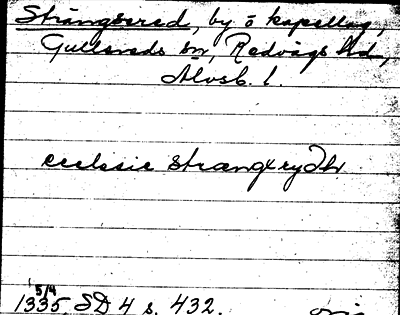 Strängsered, by o kapellag,
Gullereds sn, Redvägs hd,
Älvsb. l.
ecclesie strangxrydhr
15/4
1335. SD 4 s. 432. orig.